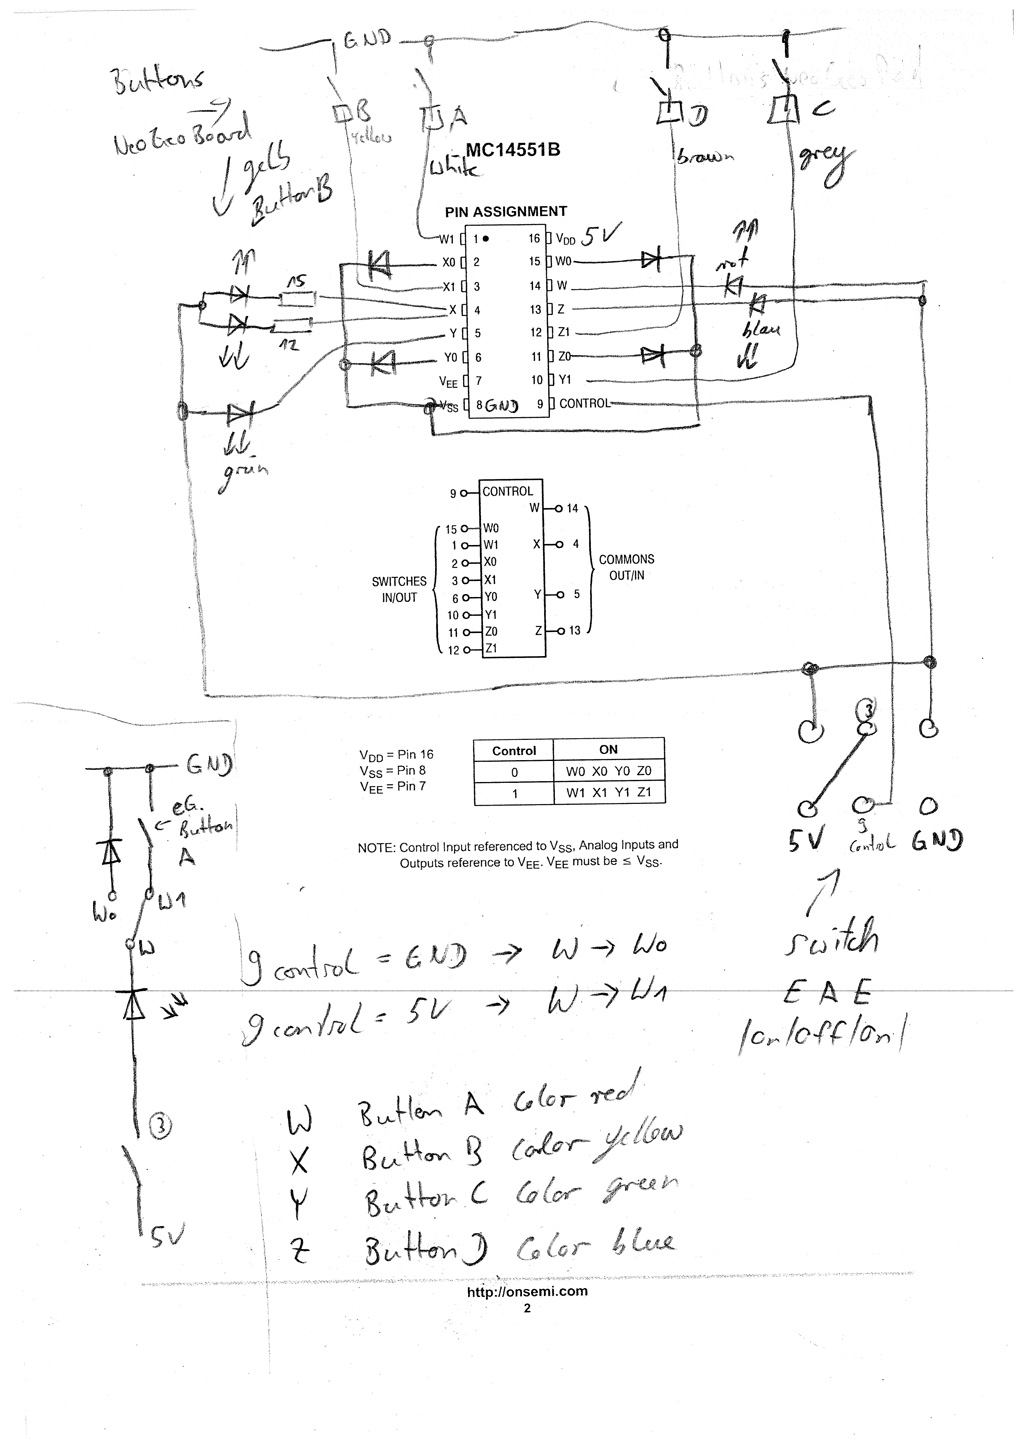 GND
Buttons
NeoGeo Board
gelb
Button B
B
yellow
A
white
D
brown
C
grey
MC14551B
PIN ASSIGNMENT
W1 1 16 VDD 5V
X0 2 15 W0
X1 3 14 W
X 4 13 Z
Y 5 12 Z1
Y0 6 11 Z0
VEE 7 10 Y1
VSS 8 GND 9 CONTROL
15
12
grün
rot
blau
9 CONTROL
W 14
15 W0
1 W1
X 4
2 X0
3 X1
SWITCHES
IN/OUT
COMMONS
OUT/IN
6 Y0
Y 5
10 Y1
11 Z0
Z 13
12 Z1
3
5V
9
Control
GND
switch
E A E
/on/off/on/
VDD = Pin 16
VSS = Pin 8
VEE = Pin 7
Control ON
0 W0 X0 Y0 Z0
1 W1 X1 Y1 Z1
NOTE: Control Input referenced to VSS, Analog Inputs and
Outputs reference to VEE. VEE must be ≤ VSS.
GND
eG.
Button
A
W0
W1
W
3
5V
9 control = GND → W → W0
9 control = 5V → W → W1
W Button A Color red
X Button B Color yellow
Y Button C Color green
Z Button D Color blue
http://onsemi.com
2